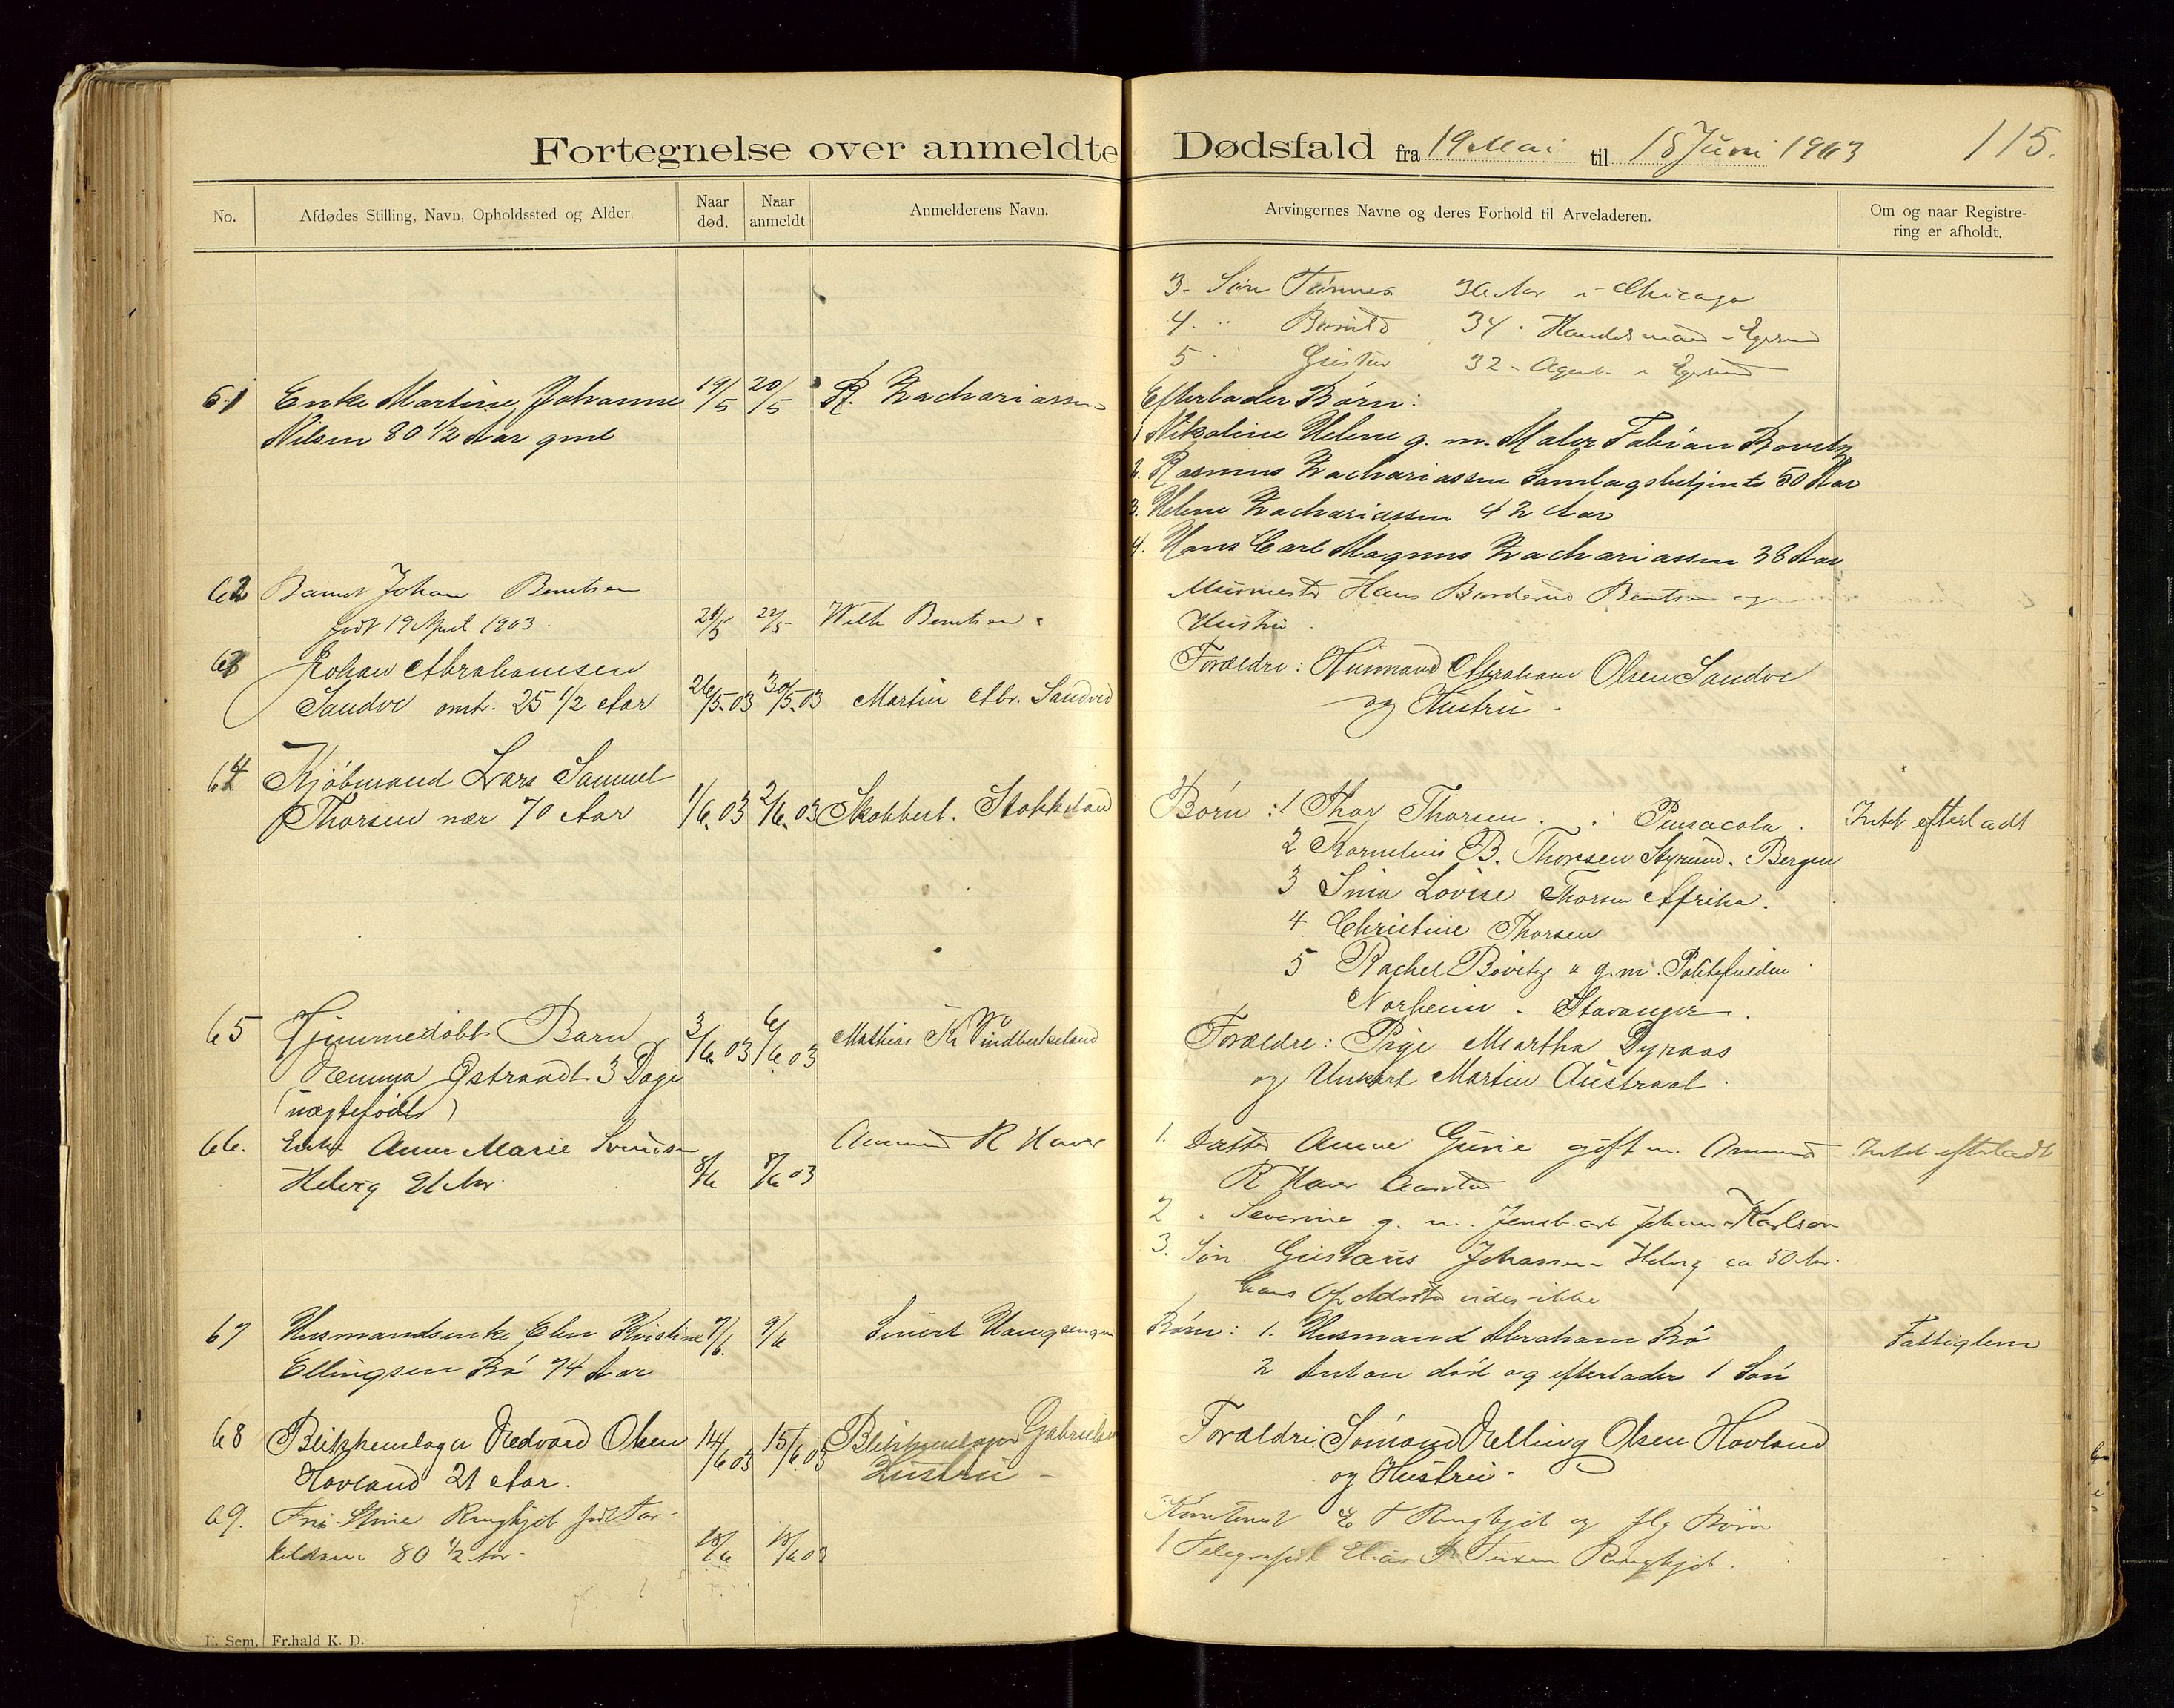 Fortegnelse over anmeldte Dødsfald fra 19 Mai til 18 Juni 1903 115.
No. Afdødes Stilling, Navn, Opholdssted og Alder. Naar død. Naar anmeldt Anmelderens Navn. Arvingernes Navne og deres Forhold til Arveladeren. Om og naar Registrering er afholdt.
3. Søn Tønnes 36 Aar i Chicago
4. " Berntd 34 " Handelsmand - Egersund
5 " Gustav 32 - Agent i Egersund
61 Enke Martine Johanne 19/5 20/5 R. Zachariassen Efterlader Børn:
Nilsen 80 1/2 Aar gml
1 Nikoline Helene g. m. Maler Fabian Bovitz
2. Rasmus Zachariassen Samlagsbetjent 50 Aar
3. Helene Zachariassen 42 Aar
4. Hans Carl Magnus Zachariassen 38 Aar
62 Barnet Johan Berntsen Murmester Hans Berntsen og
født 19 April 1903. 21/5 22/5 Wilh Berntsen. Hustru.
63 Johan Abrahamsen Forældre: Husmand Abraham Olsen Sandve
Sandve omtr. 25 1/2 Aar 26/5.03 30/5.03 Martin Abr. Sandved og Hustru.
64 Kjøbmand Lars Samuel
Thorsen nær 70 Aar 1/6.03 2/6.03 Skobbest. Stokkeland Børn: 1 Thor Thorsen. i Pensacola. Intet efterladt
2 Kornelius B. Thorsen Styrmd. Bergen
3 Sina Lovise Thorsen Afrika.
4. Christine Thorsen
5 Rachel Bovitz g.m. Politifuldm.
Norheim - Stavanger.
65 Hjemmedøbt Barn 3/6 03 6/6 03 Mathias Kr Vindbirkeland Forældre: Pige Martha Dyraas
Ramma Østraadt 3 Dage og Unkarl Martin Austraat.
(uægtefødt)
66. Enke Anne Marie Svendsen 8/6 8/6 03 Aamund R Haver 1. Datter Anne Gurie gift m. Ommund Intet efterladt
Helvig Aar. R Haver
2 " Severine g. m. Jernb.arb Johan Karlsen
3. Søn Gustavus Johassen Helvig ca 50 Aar.
hans Opholdssted vides ikke
67 Husmandsenke Elen Kristine 7/6. 9/6 Sivert Haugsengen Børn: 1. Husmand Abraham Bø Fattiglem
Ellingsen Bø 74 Aar 2 Anton død og efterlader 1 Søn
68 Blikkenslager Edvard Olsen 14/6 03 15/6.03 Blikkenslager Gabrielsens Forældre: Sømand Elling Olsen Hovland
Hovland 21 Aar. Hustru - og Hustru.
69. Fru Stine Ringkjøb født Tor- E T Ringkjøb og flg Børn
kildsen 80 1/2 Aar. 18/6 18/6 03 1 Telegrafist Elias Ringkjøb.
E. Sem, Fr.hald K. D.